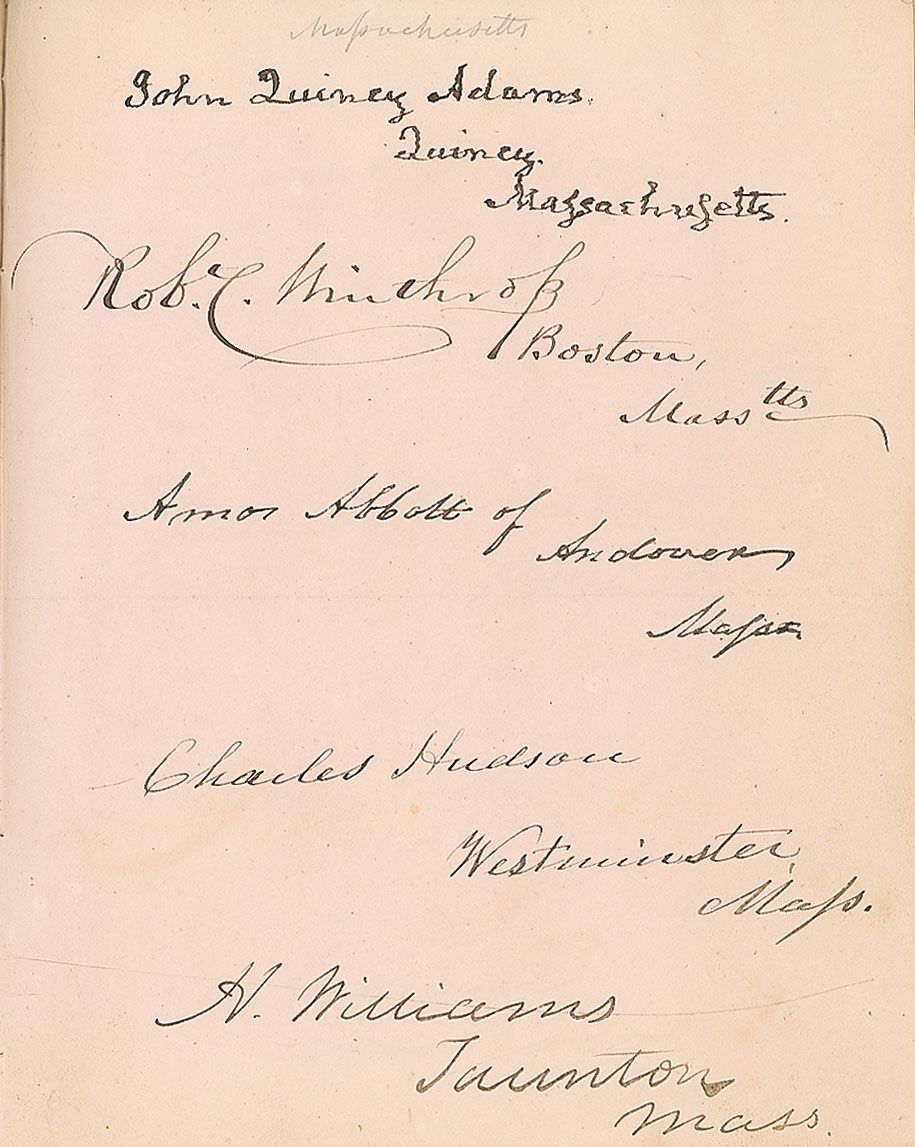 Massachusetts
John Quincy Adams.
Quincy.
Massachusetts.
Robt. C. Winthrop
Boston,
Masstts
Amos Abbott of
Andover,
Mass.
Charles Hudson
Westminster,
Mass.
H. Williams
Taunton
Mass.